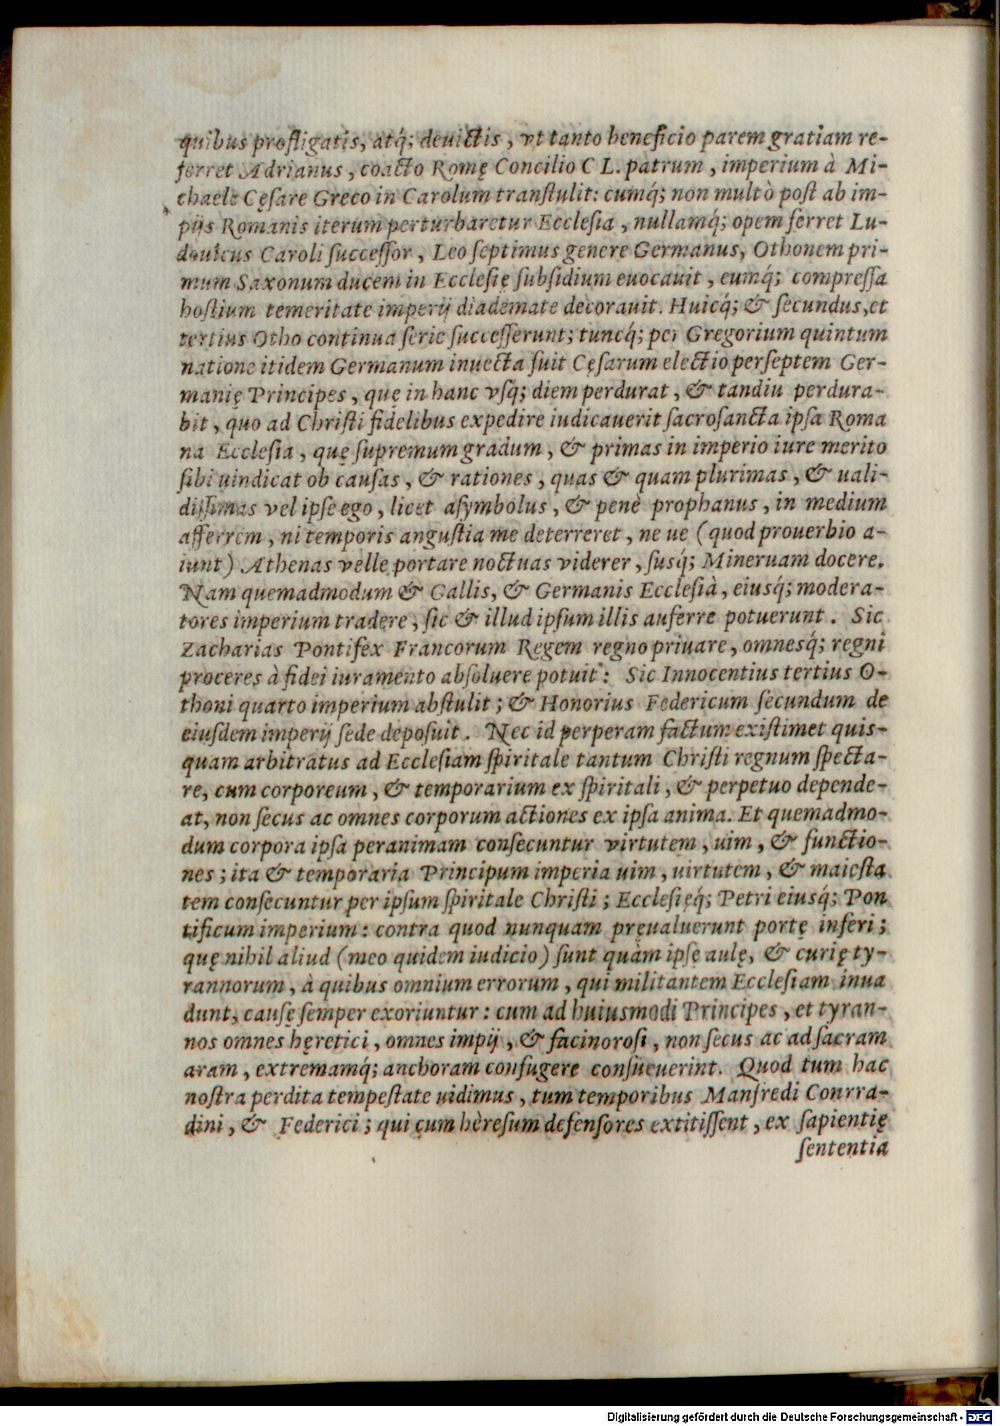 quibus profligatis, atq́; deuictis, vt tanto beneficio parem gratiam re-
ferret Adrianus, coacto Romę Concilio CL. patrum, imperium à Mi-
chaele Cęsare Greco in Carolum transtulit: cumq́; non multò post ab im-
pijs Romanis iterum perturbaretur Ecclesia, nullamq́; opem ferret Lu-
douicus Caroli successor, Leo septimus genere Germanus, Othonem pri-
mum Saxonum ducem in Ecclesię subsidium euocauit, eumq́; compressa
hostium temeritate imperij diademate decorauit. Huicq́; & secundus, et
tertius Otho continua serie successerunt; tuncq́; per Gregorium quintum
natione itidem Germanum inuecta fuit Cęsarum electio per septem Ger-
manię Principes, quę in hanc vsq́; diem perdurat, & tandiu perdura-
bit, quo ad Christi fidelibus expedire iudicauerit sacrosancta ipsa Roma
na Ecclesia, quę supremum gradum, & primas in imperio iure merito
sibi uindicat ob causas, & rationes, quas & quam plurimas, & uali-
dissimas vel ipse ego, licet asymbolus, & penè prophanus, in medium
afferrem, ni temporis angustia me deterreret, ne ue (quod prouerbio a-
iunt) Athenas velle portare noctuas viderer, susq́; Mineruam docere.
Nam quemadmodum & Gallis, & Germanis Ecclesià, eiusq́; modera-
tores imperium tradere, sic & illud ipsum illis auferre potuerunt. Sic
Zacharias Pontifex Francorum Regem regno priuare, omnesq́; regni
proceres à fidei iuramento absoluere potuit: Sic Innocentius tertius O-
thoni quarto imperium abstulit; & Honorius Federicum secundum de
eiusdem imperij sede deposuit. Nec id perperam factum existimet quis-
quam arbitratus ad Ecclesiam spiritale tantum Christi regnum specta-
re, cum corporeum, & temporarium ex spiritali, & perpetuo depende-
at, non secus ac omnes corporum actiones ex ipsa anima. Et quemadmo-
dum corpora ipsa per animam consecuntur virtutem, uim, & functio-
nes; ita & temporaria Principum imperia uim, uirtutem, & maiesta
tem consecuntur per ipsum spiritale Christi; Ecclesięq́; Petri eiusq́; Pon
tificum imperium: contra quod nunquam pręualuerunt portę inferi;
quę nihil aliud (meo quidem iudicio) sunt quàm ipsę aulę, & curię ty-
rannorum, à quibus omnium errorum, qui militantem Ecclesiam inua
dunt, causę semper exoriuntur: cum ad huiusmodi Principes, et tyran-
nos omnes hęretici, omnes impij, & facinorosi, non secus ac ad sacram
aram, extremamq́; anchoram confugere consueuerint. Quod tum hac
nostra perdita tempestate uidimus, tum temporibus Manfredi Conrra-
dini, & Federici; qui cum hèresum defensores extitissent, ex sapientię
sententia
Digitalisierung gefördert durch die Deutsche Forschungsgemeinschaft - DFG